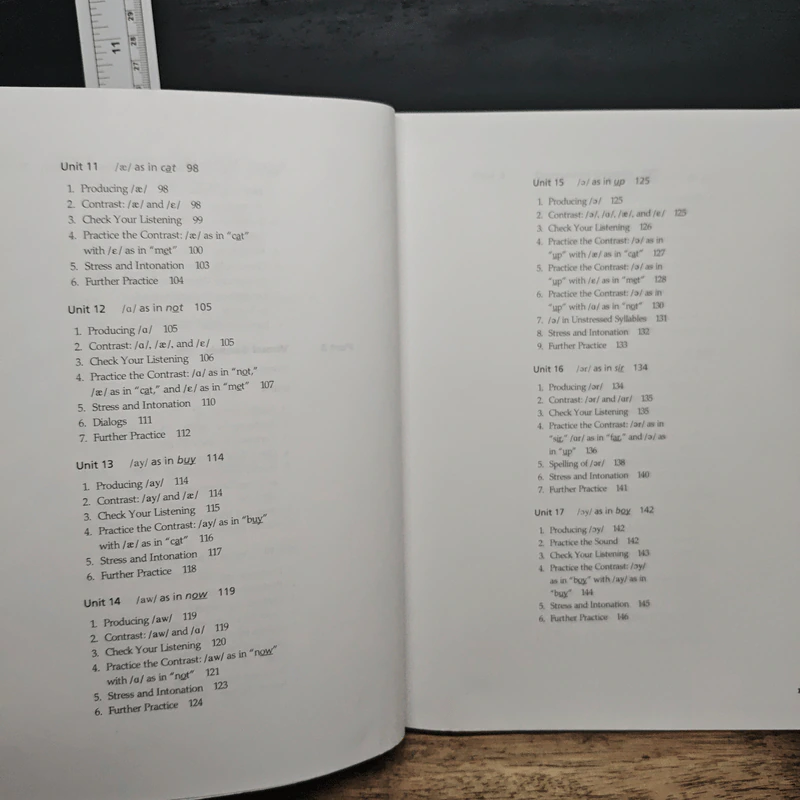 11
29
28
27
Unit 11 /æ/ as in cat 98
1. Producing /æ/ 98
2. Contrast: /æ/ and /ɛ/ 98
3. Check Your Listening 99
4. Practice the Contrast: /æ/ as in "cat"
with /ɛ/ as in "met" 100
5. Stress and Intonation 103
6. Further Practice 104
Unit 12 /ɑ/ as in not 105
1. Producing /ɑ/ 105
2. Contrast: /ɑ/, /æ/, and /ɛ/ 105
3. Check Your Listening 106
4. Practice the Contrast: /ɑ/ as in "not,"
/æ/ as in "cat," and /ɛ/ as in "met" 107
5. Stress and Intonation 110
6. Dialogs 111
7. Further Practice 112
Unit 13 /ay/ as in buy 114
1. Producing /ay/ 114
2. Contrast: /ay/ and /æ/ 114
3. Check Your Listening 115
4. Practice the Contrast: /ay/ as in "buy"
with /æ/ as in "cat" 116
5. Stress and Intonation 117
6. Further Practice 118
Unit 14 /aw/ as in now 119
1. Producing /aw/ 119
2. Contrast: /aw/ and /ɑ/ 119
3. Check Your Listening 120
4. Practice the Contrast: /aw/ as in "now"
with /ɑ/ as in "not" 121
5. Stress and Intonation 123
6. Further Practice 124
Unit 15 /ə/ as in up 125
1. Producing /ə/ 125
2. Contrast: /ə/, /ɑ/, /æ/, and /ɛ/ 125
3. Check Your Listening 126
4. Practice the Contrast: /ə/ as in
"up" with /æ/ as in "cat" 127
5. Practice the Contrast: /ə/ as in
"up" with /ɛ/ as in "met" 128
6. Practice the Contrast: /ə/ as in
"up" with /ɑ/ as in "not" 130
7. /ə/ in Unstressed Syllables 131
8. Stress and Intonation 132
9. Further Practice 133
Unit 16 /ər/ as in sir 134
1. Producing /ər/ 134
2. Contrast: /ər/ and /ɑr/ 135
3. Check Your Listening 135
4. Practice the Contrast: /ər/ as in
"sir," /ɑr/ as in "far," and /ə/ as
in "up" 136
5. Spelling of /ər/ 138
6. Stress and Intonation 140
7. Further Practice 141
Unit 17 /ɔy/ as in boy 142
1. Producing /ɔy/ 142
2. Practice the Sound 142
3. Check Your Listening 143
4. Practice the Contrast: /ɔy/
as in "boy" with /ay/ as in
"buy" 144
5. Stress and Intonation 145
6. Further Practice 146